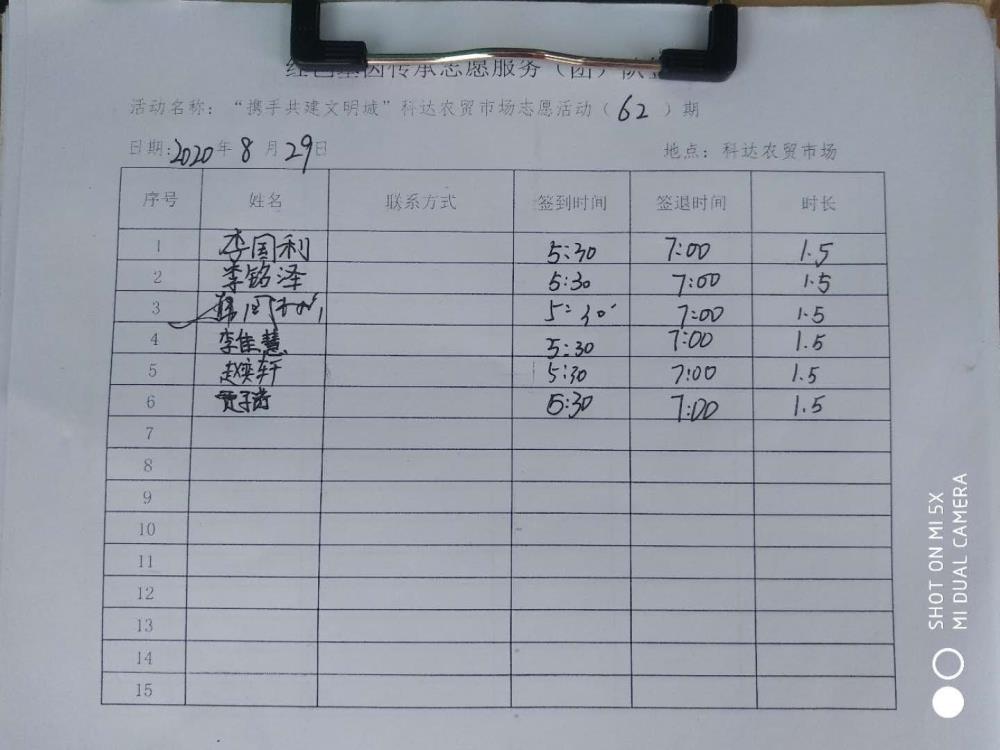 红色基因传承志愿服务（团）队签
活动名称：“携手共建文明城”科达农贸市场志愿活动（62）期
日期:2020年8月29日 地点：科达农贸市场
序号 姓名 联系方式 签到时间 签退时间 时长
1 李国利 5:30 7:00 1.5
2 李铭泽 5:30 7:00 1.5
3 5:30 7:00 1.5
4 李佳慧 5:30 7:00 1.5
5 赵奕轩 5:30 7:00 1.5
6 5:30 7:00 1.5
7
8
9
10
11
12
13
14
15
SHOT ON MI 5X
MI DUAL CAMERA